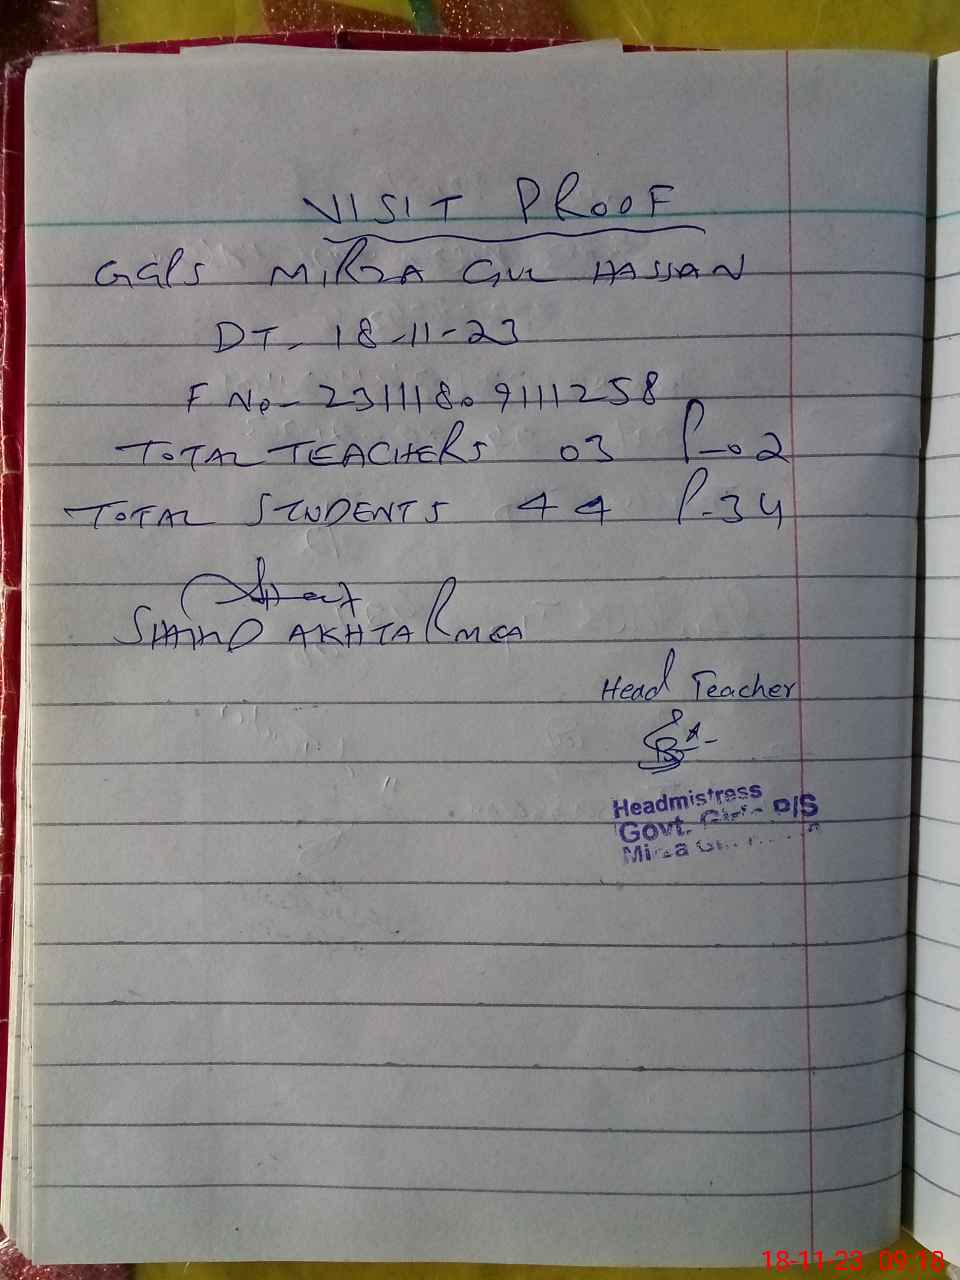 VISIT PROOF
GGPS MIRZA GUL HASSAN
DT- 18-11-23
F No- 23111809111258
TOTAL TEACHERS 03 P-02
TOTAL STUDENTS 44 P-34
AKHTAR MEA
Head Teacher
Headmistress
Govt. P/S
18-11-23 09:18